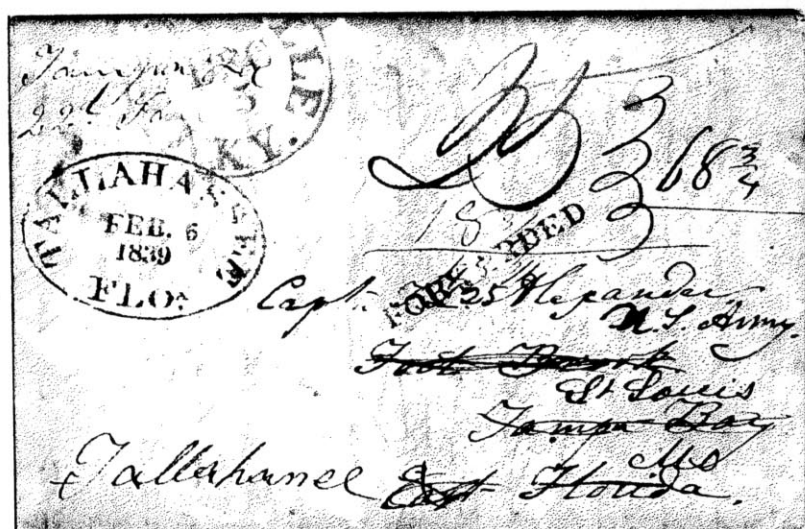 22d
LLE
KY.
TALLAHASSEE
FEB. 6
1839
FLO.
25
68 3/4
18
FORWARDED
25
Capt. Alexander
U.S. Army.
Fort Brook
St Louis
Tampa Bay
Mo
Tallahassee East Florida.